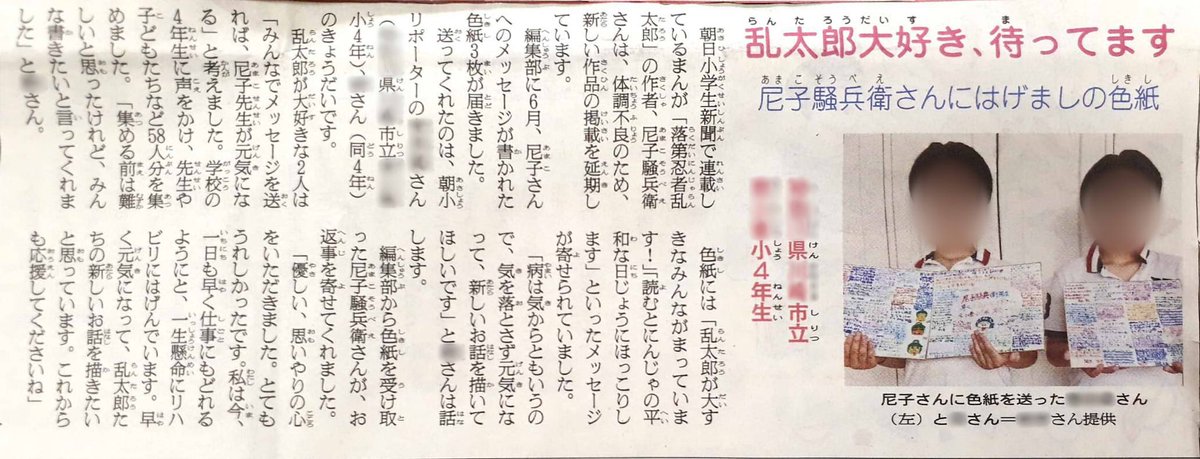 らんたろうだいす ま
乱太郎大好き、待ってます
あまこそうべえ しきし
尼子騒兵衛さんにはげましの色紙
県 市立
小4年生
尼子騒兵衛先生
尼子さんに色紙を送った さん
(左)と さん= さん提供
朝日小学生新聞で連載し
ているまんが「落第忍者乱
太郎」の作者、尼子騒兵衛
さんは、体調不良のため、
新しい作品の掲載を延期し
ています。
編集部に6月、尼子さん
へのメッセージが書かれた
色紙3枚が届きました。
送ってくれたのは、朝小
リポーターの さん
(県 市立
小4年)、 さん(同4年)
のきょうだいです。
乱太郎が大好きな2人は
「みんなでメッセージを送
れば、尼子先生が元気にな
る」と考えました。学校の
4年生に声をかけ、先生や
子どもたちなど58人分を集
めました。「集める前は難
しいと思ったけれど、みん
な書きたいと言ってくれま
した」と さん。
色紙には「乱太郎が大す
きなみんながまっていま
す!」「読むとにんじゃの平
和な日じょうにほっこりし
ます」といったメッセージ
が寄せられていました。
「病は気からともいうの
で、気を落とさず元気にな
って、新しいお話を描いて
ほしいです」と さんは話
します。
編集部から色紙を受け取
った尼子騒兵衛さんが、お
返事を寄せてくれました。
「優しい、思いやりの心
をいただきました。とても
うれしかったです。私は今、
一日も早く仕事にもどれる
ようにと、一生懸命にリハ
ビリにはげんでいます。早
く元気になって、乱太郎た
ちの新しいお話を描きたい
と思っています。これから
も応援してくださいね」